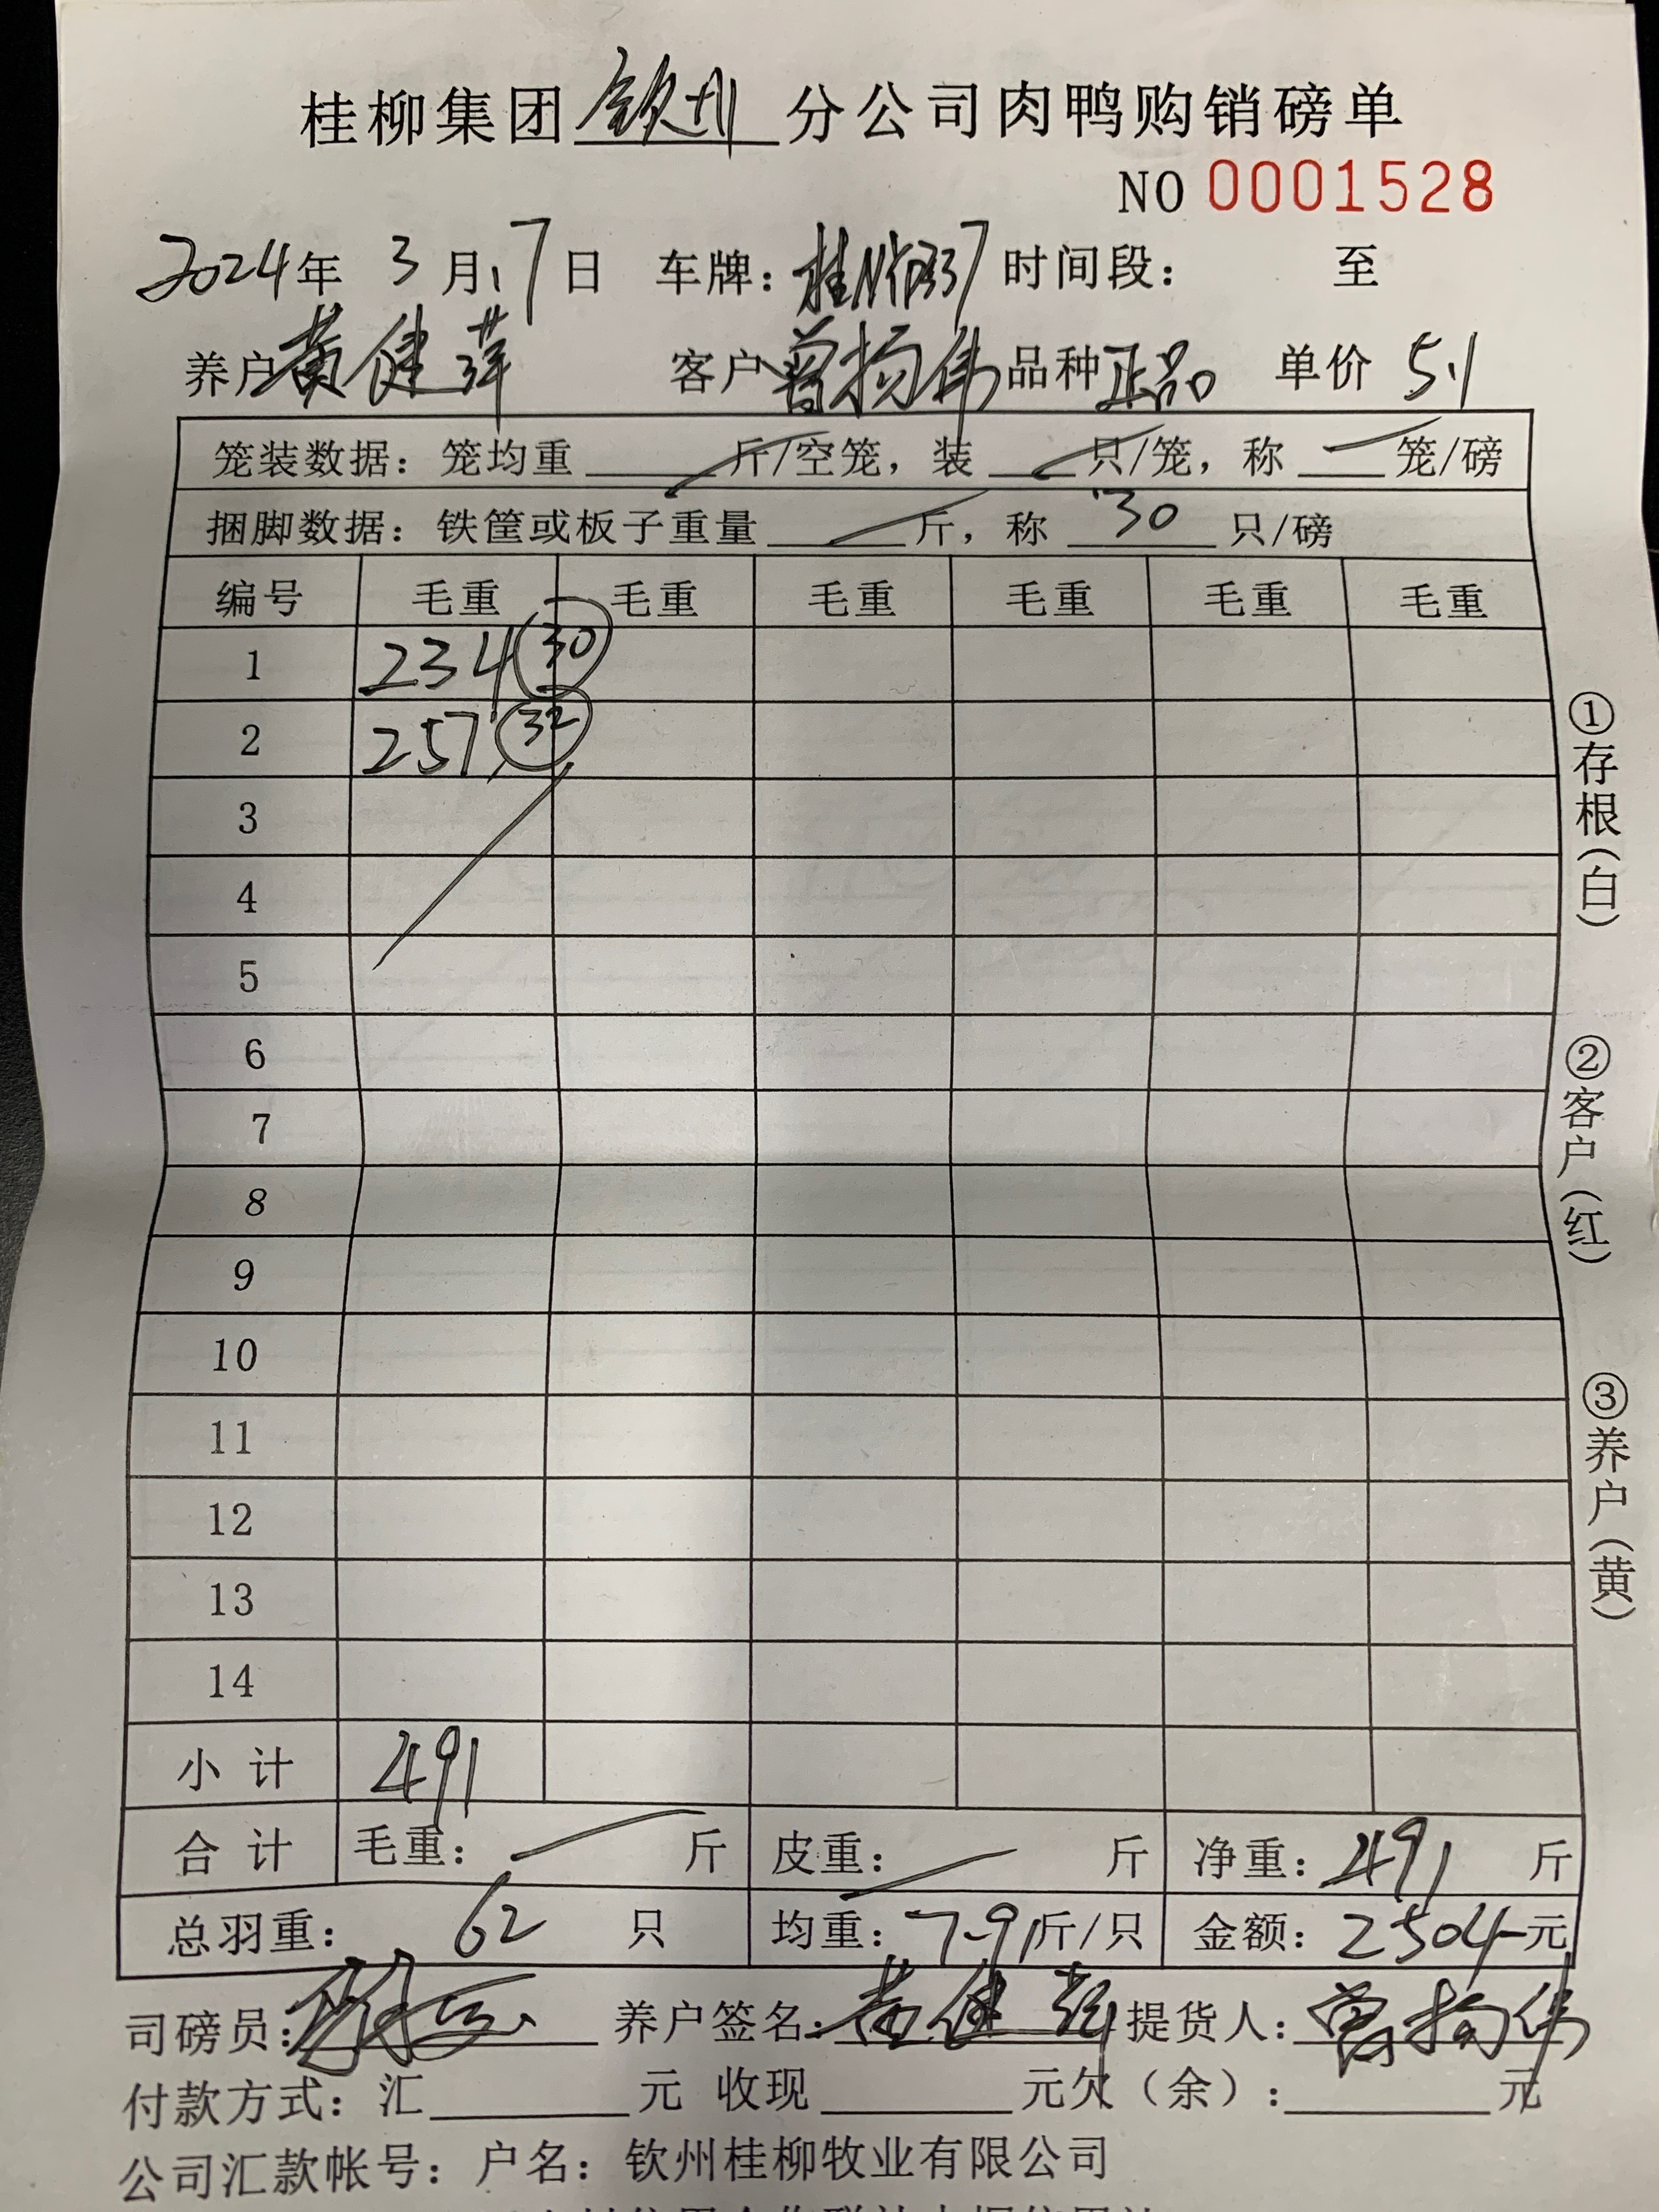 桂柳集团钦州分公司肉鸭购销磅单
NO 0001528
2024年 3月17日 车牌：桂N 时间段： 至
养户黄健萍 客户曾扬伟 品种正品 单价 5.1
笼装数据：笼均重 斤/空笼，装 只/笼，称 笼/磅
捆脚数据：铁筐或板子重量 斤，称 30 只/磅
编号 毛重 毛重 毛重 毛重 毛重 毛重
1 234 30
2 257 32
3
4
5
6
7
8
9
10
11
12
13
14
小计 491
合计 毛重： 斤 皮重： 斤 净重：491 斤
总羽重： 62 只 均重：7.91斤/只 金额：2504元
司磅员： 养户签名：黄健 提货人：曾扬伟
付款方式：汇 元 收现 元欠（余）： 元
公司汇款帐号：户名：钦州桂柳牧业有限公司
①存根（白）
②客户（红）
③养户（黄）